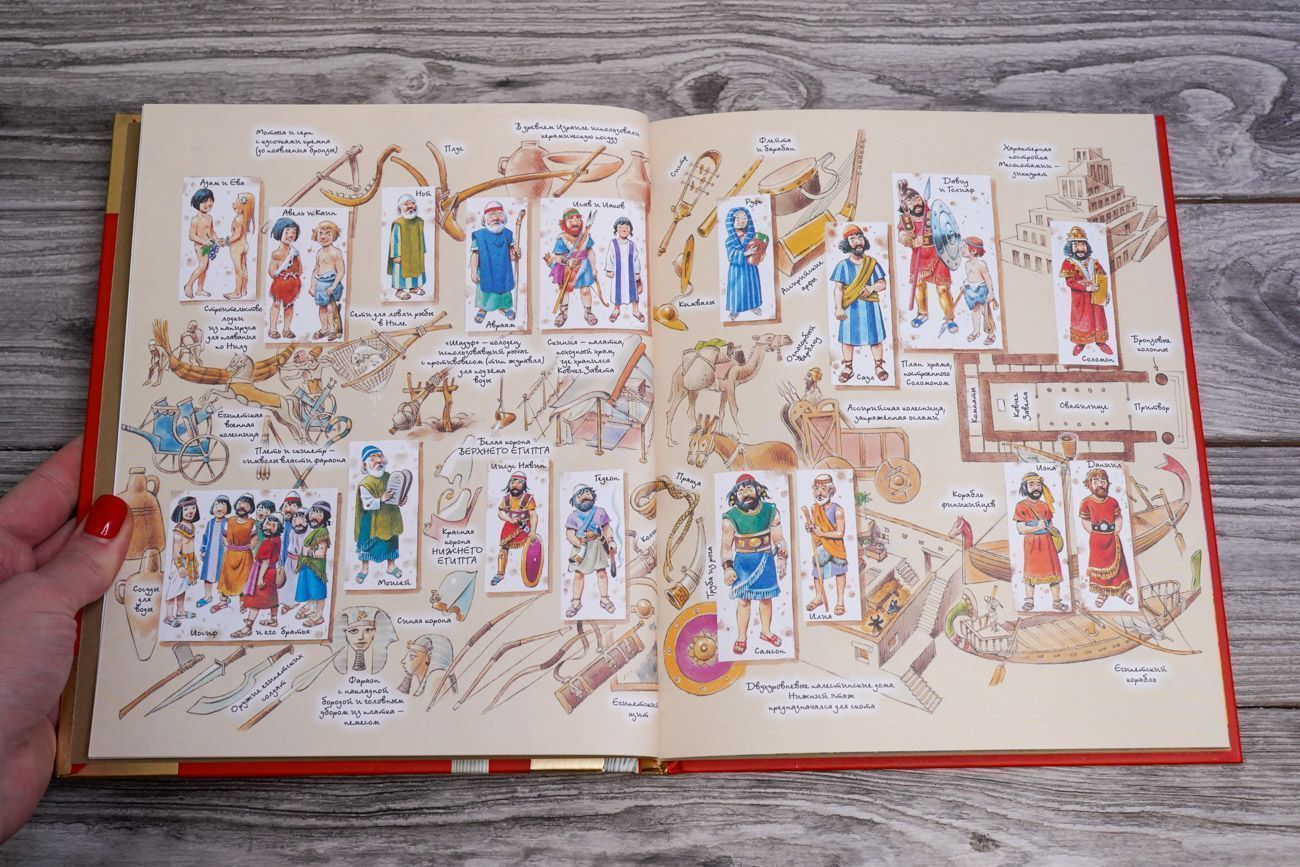 Мотыга и серп
с кусочками кремня
(до появления бронзы)
Плуг
В древнем Израиле использовали
керамическую посуду
Адам и Ева
Авель и Каин
Ной
Авраам
Исав и Иаков
Строительство
лодки
из папируса
для плавания
по Нилу
Сети для ловли рыбы
в Ниле
«Шадуф» – колодец,
использовавший рычаг
с противовесом (тип журавля)
для подъёма
воды
Скиния – палатка,
походный храм,
где хранился
Ковчег Завета
Египетская
военная
колесница
Плеть и скипетр –
символы власти фараона
Белая корона
ВЕРХНЕГО ЕГИПТА
Иисус Навин
Гедеон
Моисей
Красная
корона
НИЖНЕГО
ЕГИПТА
Сосуды
для
воды
Иосиф и его братья
Синяя корона
Оружие египетских
солдат
Фараон
с накладной
бородой и головным
убором из платка –
немесом
Египетский
щит
Систр
Флейта
и барабан
Характерная
постройка
Месопотамии –
зиккурат
Руфь
Давид
и Голиаф
Кимвалы
Ассирийские
арфы
Саул
Соломон
Одногорбый
верблюд
План храма,
построенного
Соломоном
Бронзовые
колонны
Ассирийская колесница,
запряжённая ослами
Комнаты
Ковчег
Завета
Святилище
Притвор
Праща
Труба из рога
Самсон
Илия
Корабль
финикийцев
Иона
Даниил
Двухуровневые палестинские дома.
Нижний этаж
предназначался для скота
Египетский
корабль